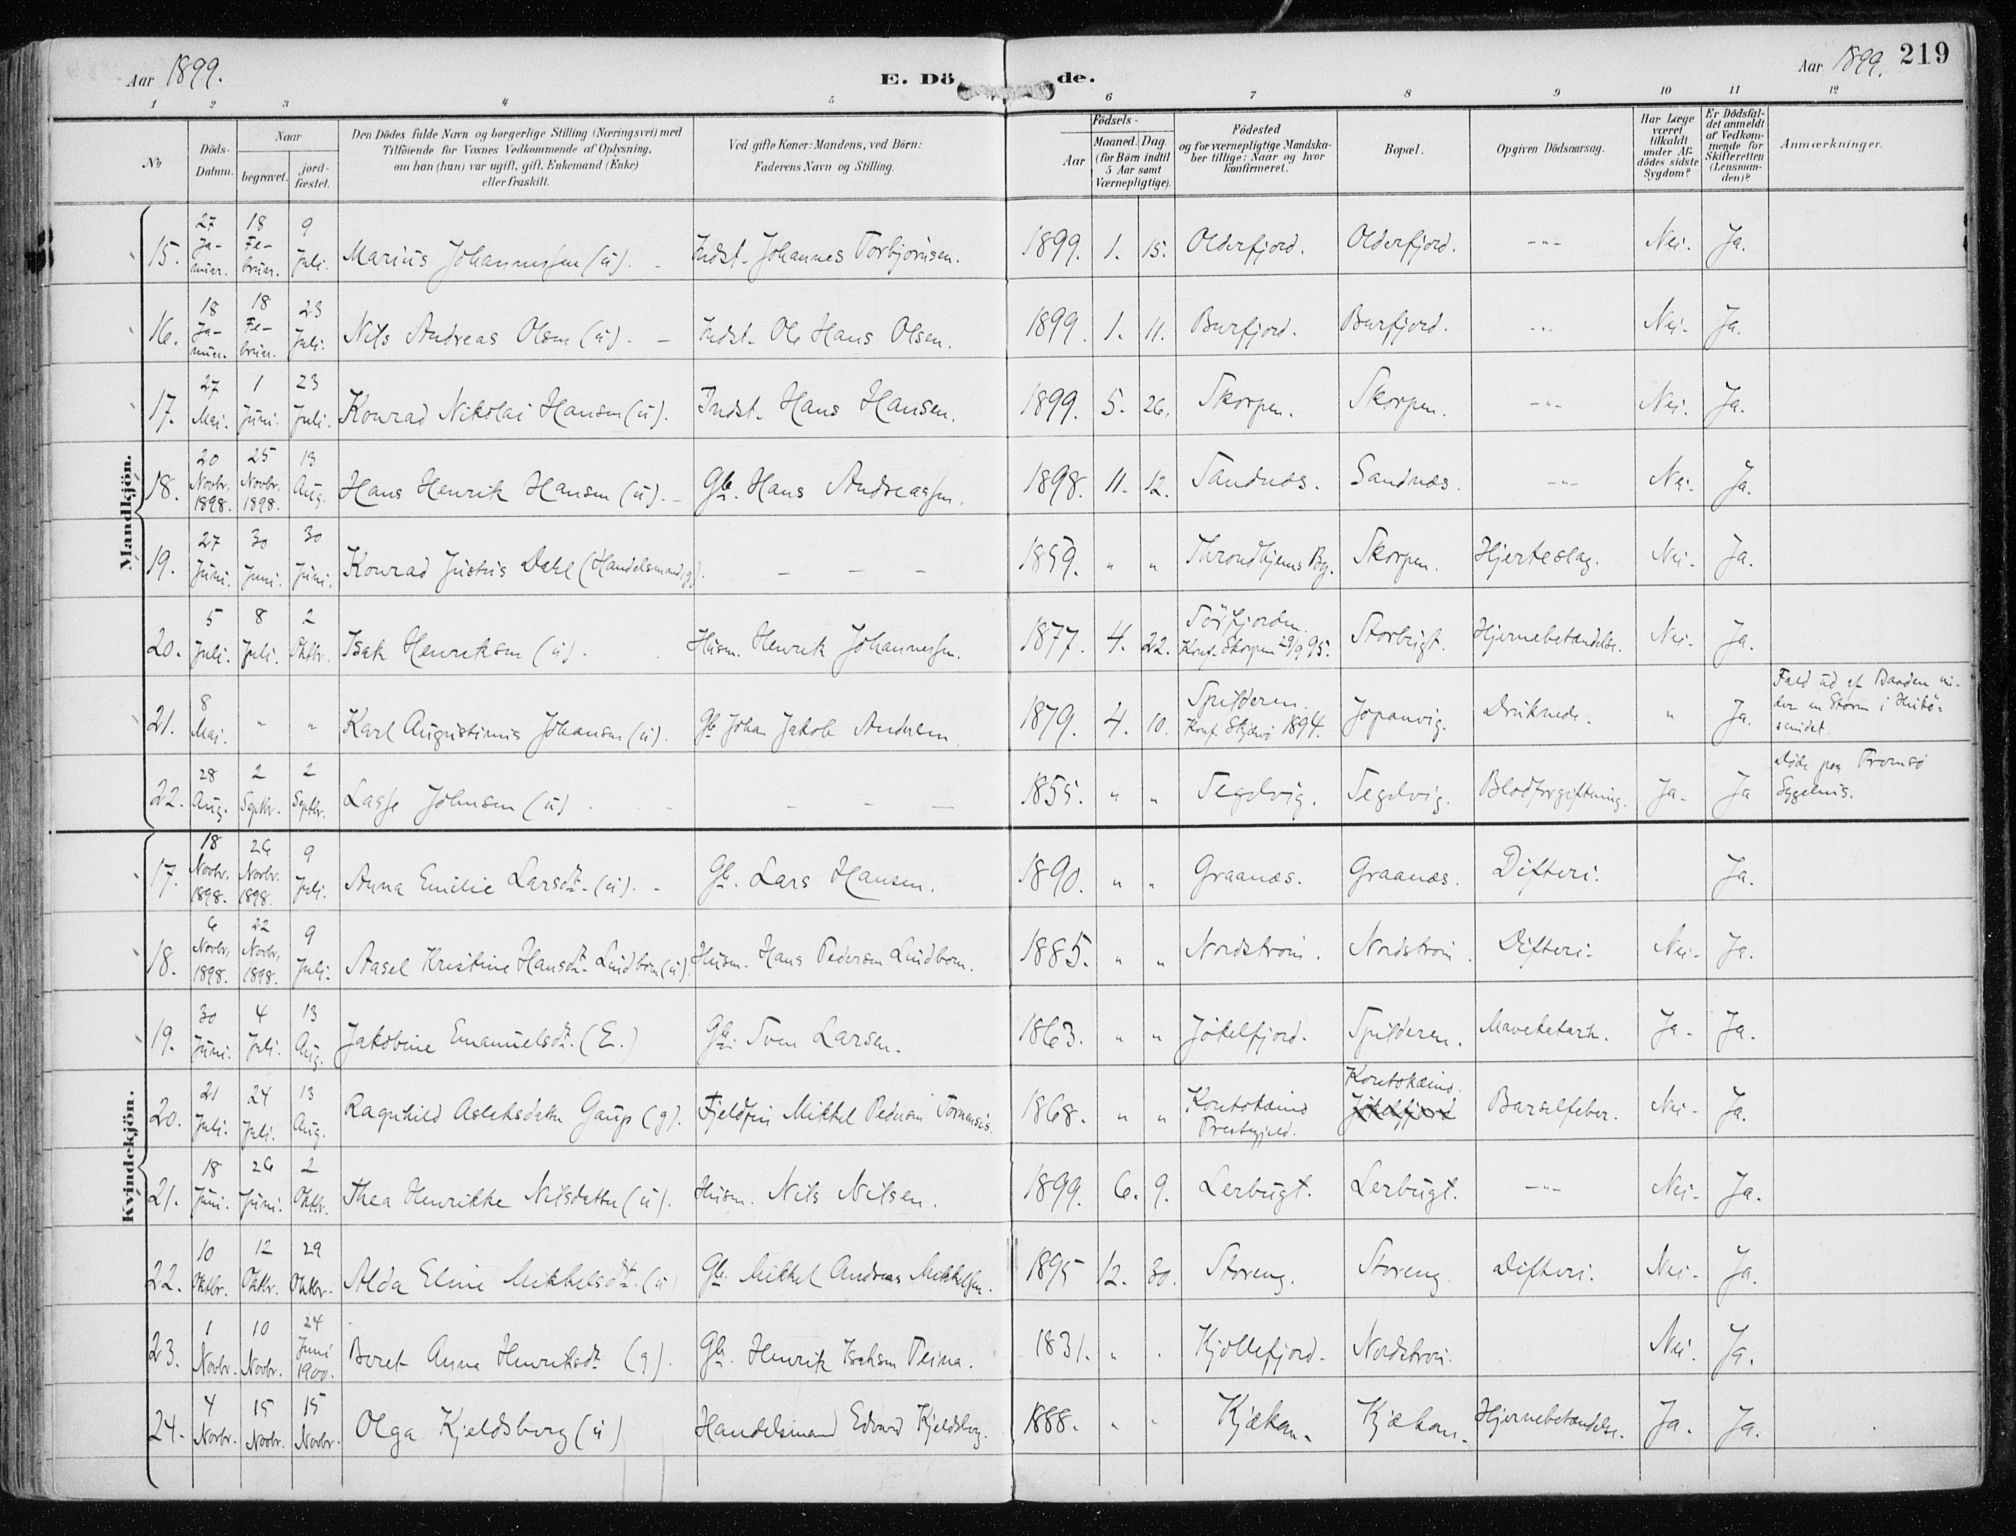 Aar 1899.
E. Dö
de.
Aar 1899. 219
1 2 3 4 5 6 7 8 9 10 11 12
No
Döds-Datum.
Naar
begravet.
jord-fæstet.
Den Dödes fulde Navn og borgerlige Stilling (Næringsvei) med
Tilföiende for Voxnes Vedkommende af Oplysning,
om han (hun) var ugift, gift, Enkemand (Enke)
eller fraskilt.
Ved gifte Koner: Mandens, ved Börn:
Faderens Navn og Stilling.
Födsels-
Aar
Maaned. Dag
(for Börn indtil
5 Aar samt
Værnepligtige).
Födested
og for værnepligtige Mandska-
ber tillige: Naar og hvor
konfirmeret.
Bopæl.
Opgiven Dödsaarsag.
Har Læge
været
tilkaldt
under Af-
dödes sidste
Sygdom?
Er Dödsfal-
det anmeldt
af Vedkom-
mende for
Skifteretten
(Lensman-
den)?
Anmærkninger.
Mandkjön.
15. 27 Ja-nuar. 18 Fe-bruar. 9 Juli. Marius Johannessen (u). Indst. Johannes Torbjörnsen. 1899. 1. 15. Olderfjord. Olderfjord. -"- Nei. Ja.
16. 18 Ja-nuar. 18 Fe-bruar. 23 Juli. Nils Andreas Olsen (u). Indst. Ole Hans Olsen. 1899. 1. 11. Burfjord. Burfjord. -"- Nei. Ja.
17. 27 Mai. 1 Juni. 23 Juli. Konrad Nikolai Hansen (u). Indst. Hans Hansen. 1899. 5. 26. Skorpen. Skorpen. -"- Nei. Ja.
18. 20 Novbr. 1898. 25 Novbr. 1898. 13 Aug. Hans Henrik Hansen (u). Gb. Hans Andreassen. 1898. 11. 12. Sandnæs. Sandnæs. -"- Nei. Ja.
19. 27 Juni. 30 Juni. 30 Juni. Konrad Justus Dahl (Handelsmand, g). – – – 1859. " " Throndhjems By. Skorpen. Hjerteslag. Nei. Ja.
20. 5 Juli. 8 Juli. 2 Oktbr. Isak Henriksen (u). Husm. Henrik Johannessen. 1877. 4. 22. Sörfjorden. Konf. Skorpen 29/9 95. Storbugt. Hjernebetændelse. Nei. Ja.
21. 8 Mai. " " Karl Augustinus Johansen (u). Gb. Johan Jakob Andersen. 1879. 4. 10. Spilderen. Konf. Skjærvö 1894. Jöpanvig. Druknede. " Ja. Fald ud af Baaden un-
der en Storm i
sundet.
22. 28 Aug. 2 Septbr. 2 Septbr. Lasse Johnsen (u). – – – 1855. " " Segelvig. Segelvig. Blodforgiftning. Ja. Ja Døde paa Tromsö
Sygehus.
Kvindekjön.
17. 18 Novbr. 1898. 26 Novbr. 1898. 9 Juli. Anna Emilie Larsdt. (u). Gb. Lars Hansen. 1890. " " Graanæs. Graanæs. Difteri. Ja.
18. 6 Novbr. 1898. 22 Novbr. 1898. 9 Juli. Aasel Kristine Hansdt. Lindbom (u). Husm. Hans Pedersen Lindbom. 1885. " " Nordstrøm. Nordstrøm. Difteri. Nei. Ja.
19. 30 Juni. 4 Juli. 13 Aug. Jakobine Emanuelsdt. (E.) Gb. Sven Larsen. 1863. " " Jökelfjord. Spilderen. Mavekatarh. Ja. Ja.
20. 21 Juli. 24 Juli. 13 Aug. Ragnhild Aslaksdatter Gaup (g). Fjeldfin Mikkel Pedersen Tornensis. 1868. " " Koutokæino Prestegjeld. Koutokæino. Jökelfjord Barselfeber. Nei. Ja.
21. 18 Juni. 26 Juni. 2 Oktbr. Thea Henrikke Nilsdatter (u). Husm. Nils Nilsen. 1899. 6. 9. Lerbugt. Lerbugt. -"- Nei. Ja.
22. 10 Oktbr. 12 Oktbr. 29 Oktbr. Alda Eline Mikkelsdt. (u) Gb. Mikkel Andreas Mikkelsen. 1895 12. 30. Storeng. Storeng. Difteri. Nei. Ja.
23. 1 Novbr. 10 Novbr. 24 Juni 1900. Beret Anna Henriksdt. (g). Gb. Henrik Isaksen Peina. 1831. " . Kjöllefjord. Nordstrøm. Nei. Ja.
24. 4 Novbr. 15 Novbr. 15 Novbr. Olga Kjeldsberg (u) Handelsmand Edvard Kjeldsberg. 1888. " " Kjækan. Kjækan. Hjernebetændelse. Ja. Ja.